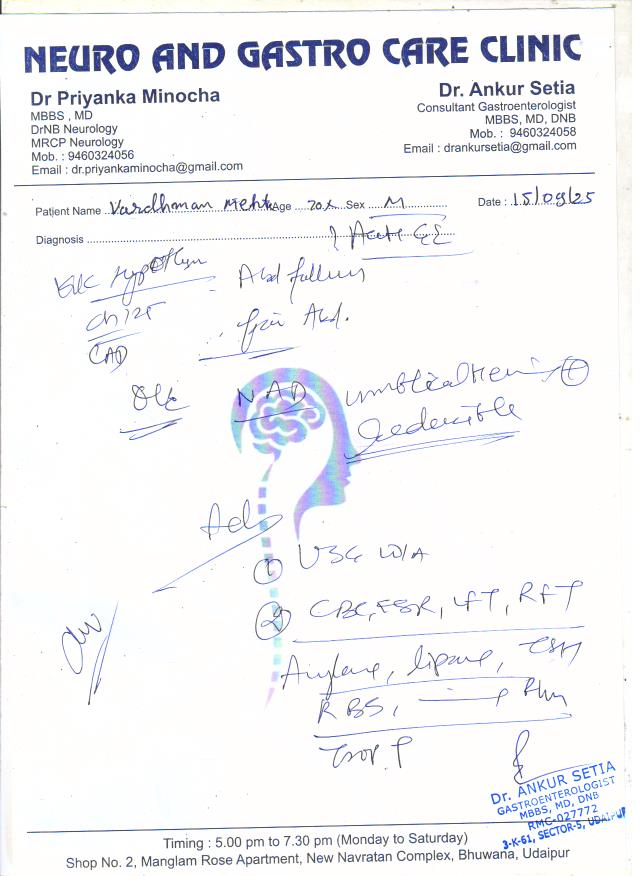 NEURO AND GASTRO CARE CLINIC
Dr Priyanka Minocha
MBBS , MD
DrNB Neurology
MRCP Neurology
Mob. : 9460324056
Email : dr.priyankaminocha@gmail.com
Dr. Ankur Setia
Consultant Gastroenterologist
MBBS, MD, DNB
Mob. : 9460324058
Email : drankursetia@gmail.com
Patient Name Vardhman Mehta Age 70 Sex M Date : 15/09/25
Diagnosis ? Acute GE
Abd fullness
Abd.
CAD
NAD umbilical Hernia
Reducible
Adv
① USG W/A
② CBC, ESR, LFT, RFT
Amylase, lipase, TSH
RBS,
Trop T
Dr. ANKUR SETIA
GASTROENTEROLOGIST
MBBS, MD, DNB
RMC-027772
3-K-61, SECTOR-5, UDAIPUR
Timing : 5.00 pm to 7.30 pm (Monday to Saturday)
Shop No. 2, Manglam Rose Apartment, New Navratan Complex, Bhuwana, Udaipur